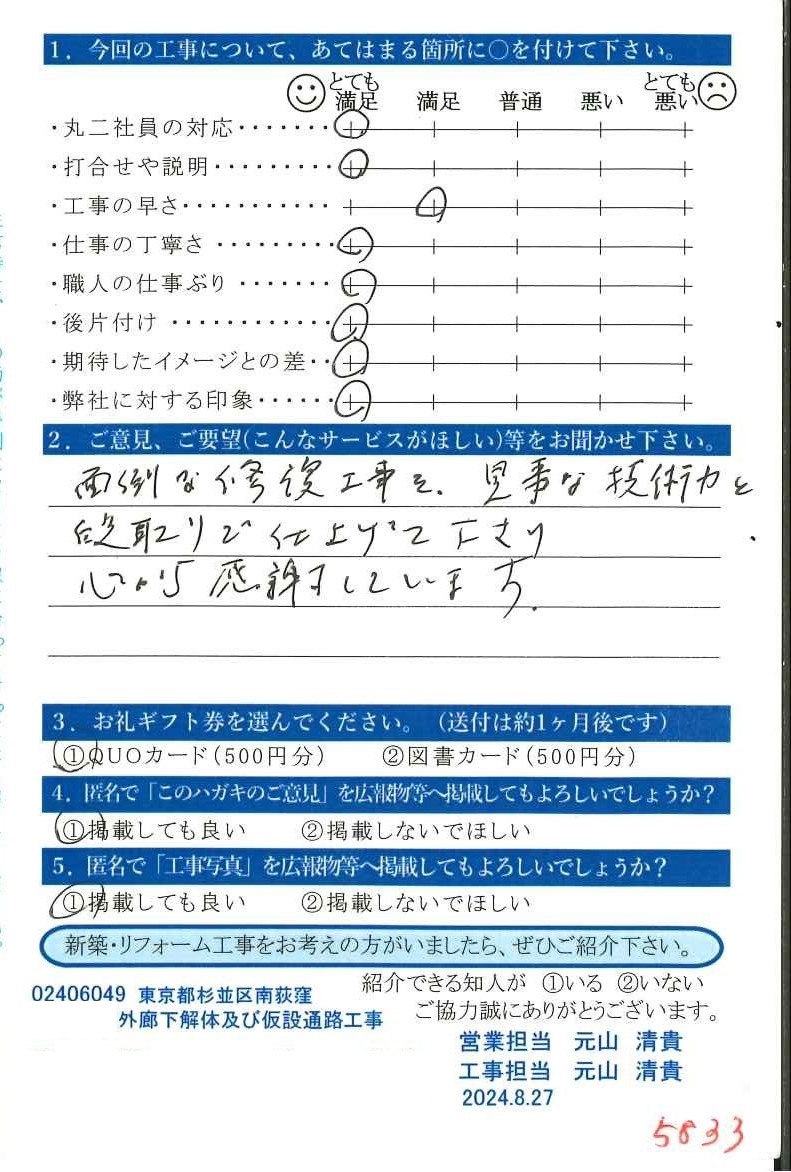 1. 今回の工事について、あてはまる箇所に○を付けて下さい。
とても満足 満足 普通 悪い とても悪い
・丸二社員の対応・・・・・・・
・打合せや説明・・・・・・・・・
・工事の早さ・・・・・・・・・・・
・仕事の丁寧さ・・・・・・・・・
・職人の仕事ぶり・・・・・・・
・後片付け・・・・・・・・・・・・
・期待したイメージとの差・・
・弊社に対する印象・・・・・
2. ご意見、ご要望(こんなサービスがほしい)等をお聞かせ下さい。
面倒な修復工事を、見事な技術力と
段取りで仕上げて下さり
心から感謝しています。
3. お礼ギフト券を選んでください。(送付は約1ヶ月後です)
①QUOカード(500円分) ②図書カード(500円分)
4. 匿名で「このハガキのご意見」を広報物等へ掲載してもよろしいでしょうか?
①掲載しても良い ②掲載しないでほしい
5. 匿名で「工事写真」を広報物等へ掲載してもよろしいでしょうか?
①掲載しても良い ②掲載しないでほしい
新築・リフォーム工事をお考えの方がいましたら、ぜひご紹介下さい。
紹介できる知人が ①いる ②いない
ご協力誠にありがとうございます。
02406049 東京都杉並区南荻窪
外廊下解体及び仮設通路工事
営業担当 元山 清貴
工事担当 元山 清貴
2024.8.27
5833